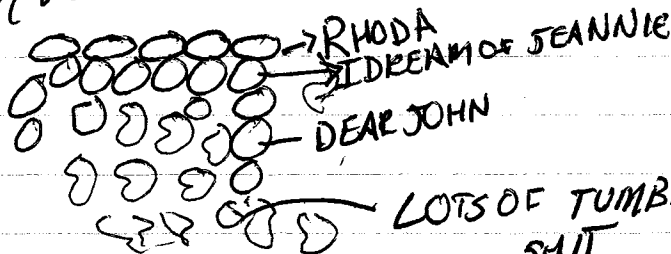 RHODA
I DREAM OF JEANNIE
DEAR JOHN
LOTS OF TUMB
SHIT